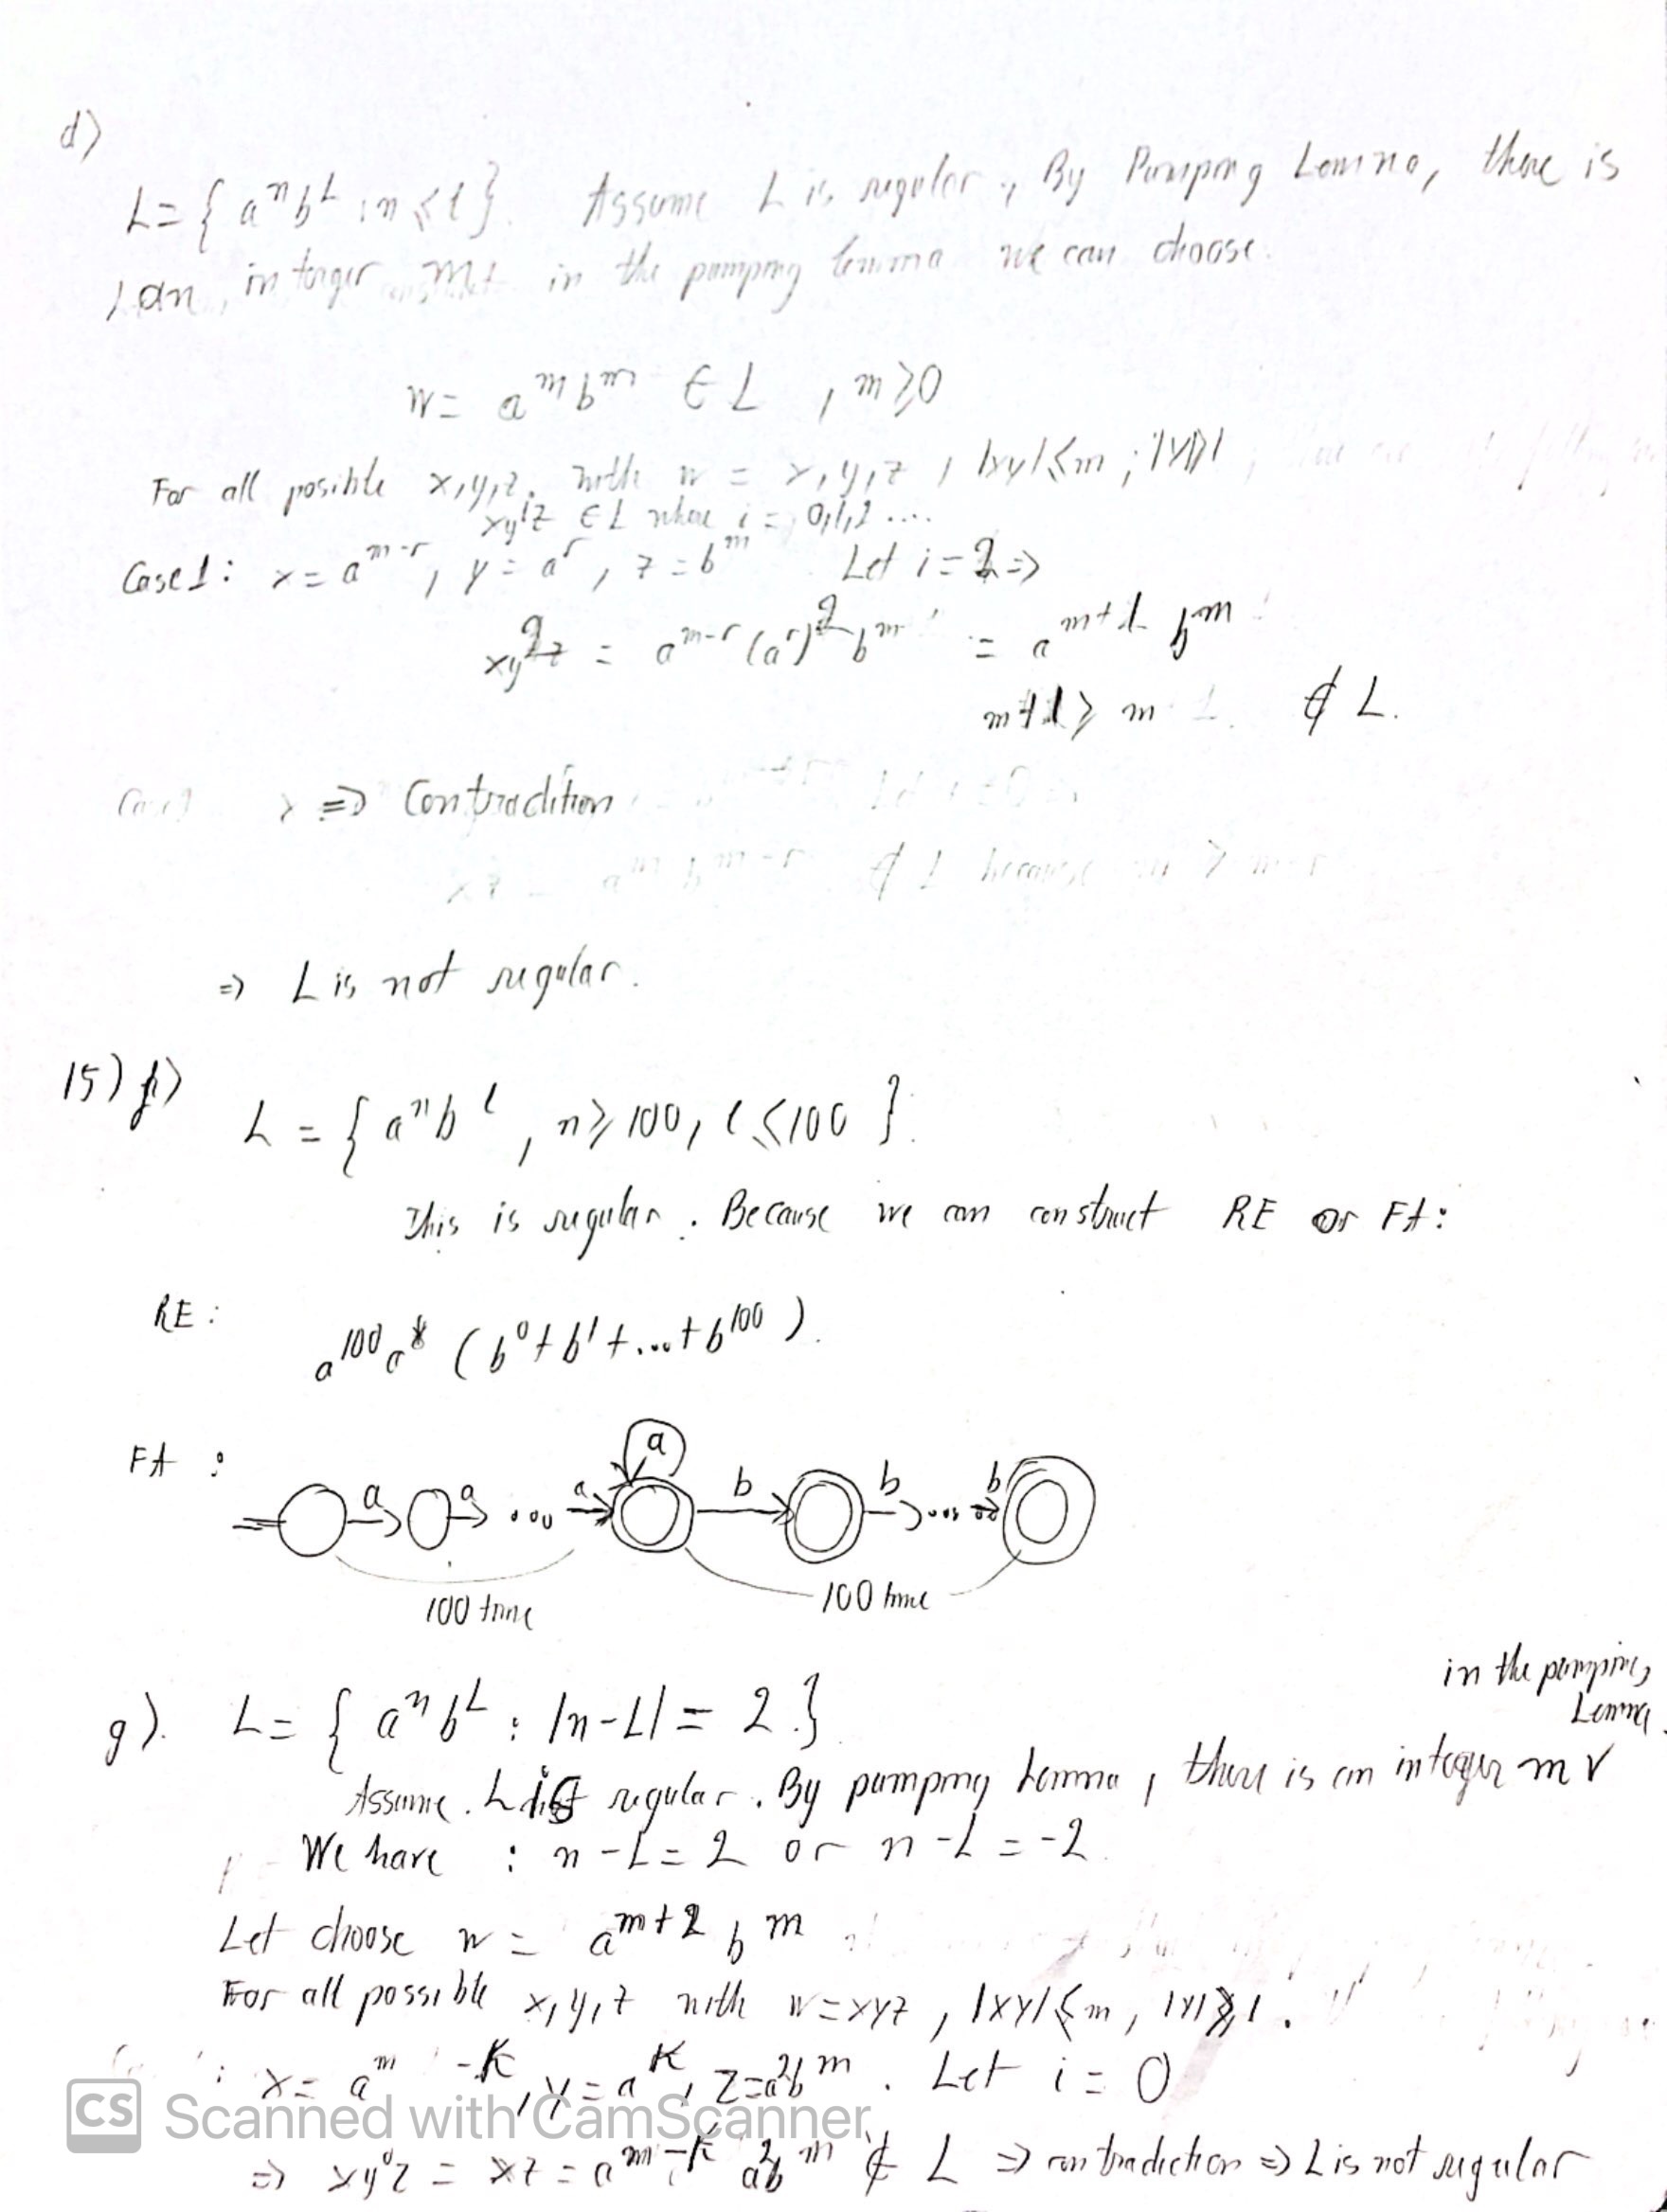 d)
L = { aⁿbᴸ : n ≤ l }. Assume L is regular, By Pumping Lemma, there is
an integer m in the pumping lemma we can choose.
w = aᵐbᵐ ∈ L , m ≥ 0
For all posible x,y,z. with w = x,y,z , |xy| ≤ m ; |y| ≥ 1
xyⁱz ∈ L where i = 0,1,2 ....
Case 1: x = aᵐ⁻ʳ, y = aʳ, z = bᵐ Let i = 2 =>
xy²z = aᵐ⁻ʳ (aʳ)² bᵐ = aᵐ⁺¹ bᵐ
m+1 > m ∉ L.
=> Contradition
xz = aᵐ bᵐ⁻ʳ ∉ L because m > m-r
=> L is not regular.
15) f)
L = { aⁿbˡ , n ≥ 100, l ≤ 100 }.
This is regular. Because we can construct RE or FA:
RE :
a¹⁰⁰a* ( b⁰ + b¹ + ... + b¹⁰⁰ ).
FA :
a a ... a a b b ... b
100 time 100 time
in the pumping
Lemma.
g). L = { aⁿbᴸ : |n-L| = 2 }
Assume. L is regular. By pumping Lemma, there is an integer m ∨
We have : n-L = 2 or n-L = -2.
Let choose w = aᵐ⁺² bᵐ
For all possible x,y,z with w = xyz , |xy| ≤ m, |y| ≥ 1.
: x = aᵐ⁻ᴷ, y = aᴷ, z = a²bᵐ. Let i = 0
CS Scanned with CamScanner
=> xy⁰z = xz = aᵐ⁻ᴷ a²bᵐ ∉ L => contradiction => L is not regular